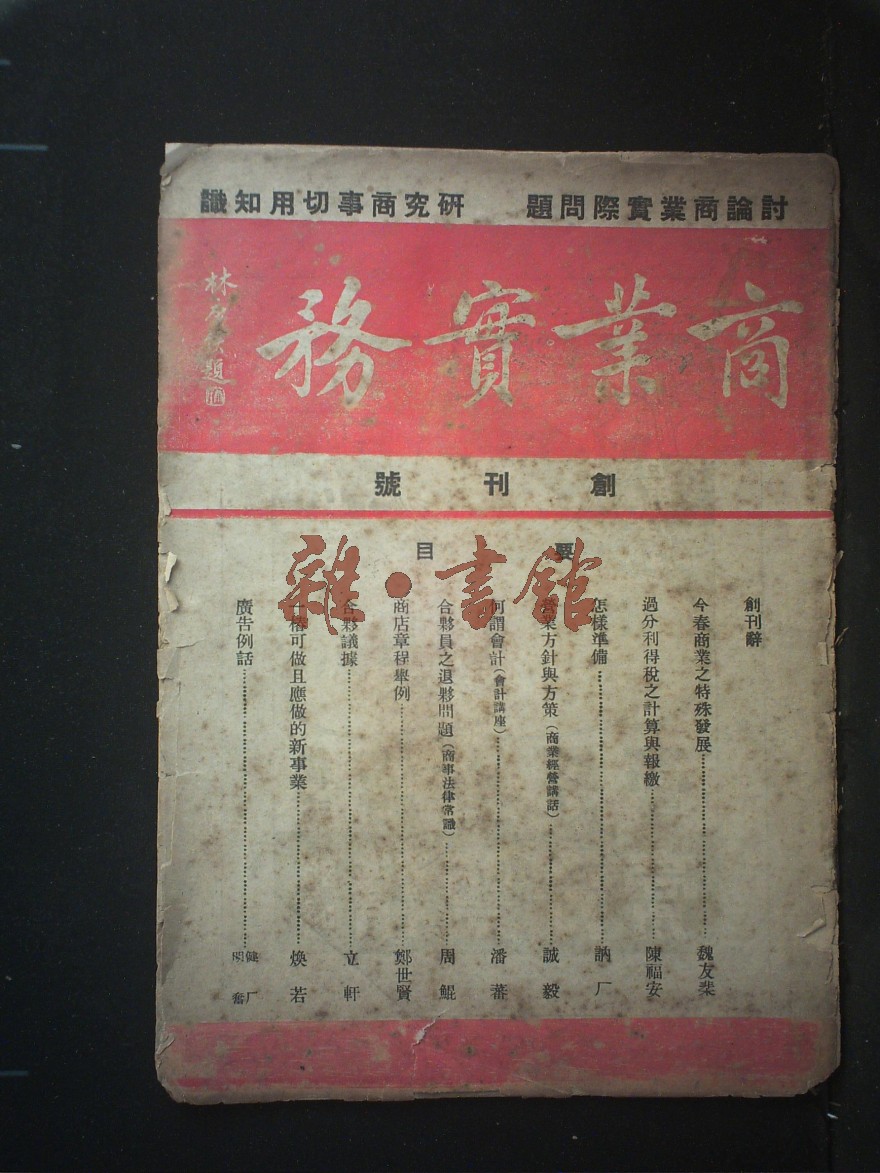 討論商業實際問題　研究商事切用知識
商業實務
林康侯題
創刊號
要目
創刊辭
今春商業之特殊發展……魏友棐
過分利得稅之計算與報繳……陳福安
怎樣準備……訥厂
營業方針與方策（商業經營講話）……誠毅
何謂會計（會計講座）……潘蕃
合夥員之退夥問題（商事法律常識）……周鯤
商店章程舉例……鄭世賢
合夥議據……立軒
一樁可做且應做的新事業……煥若
廣告例話……健厂
奮
雜·書館